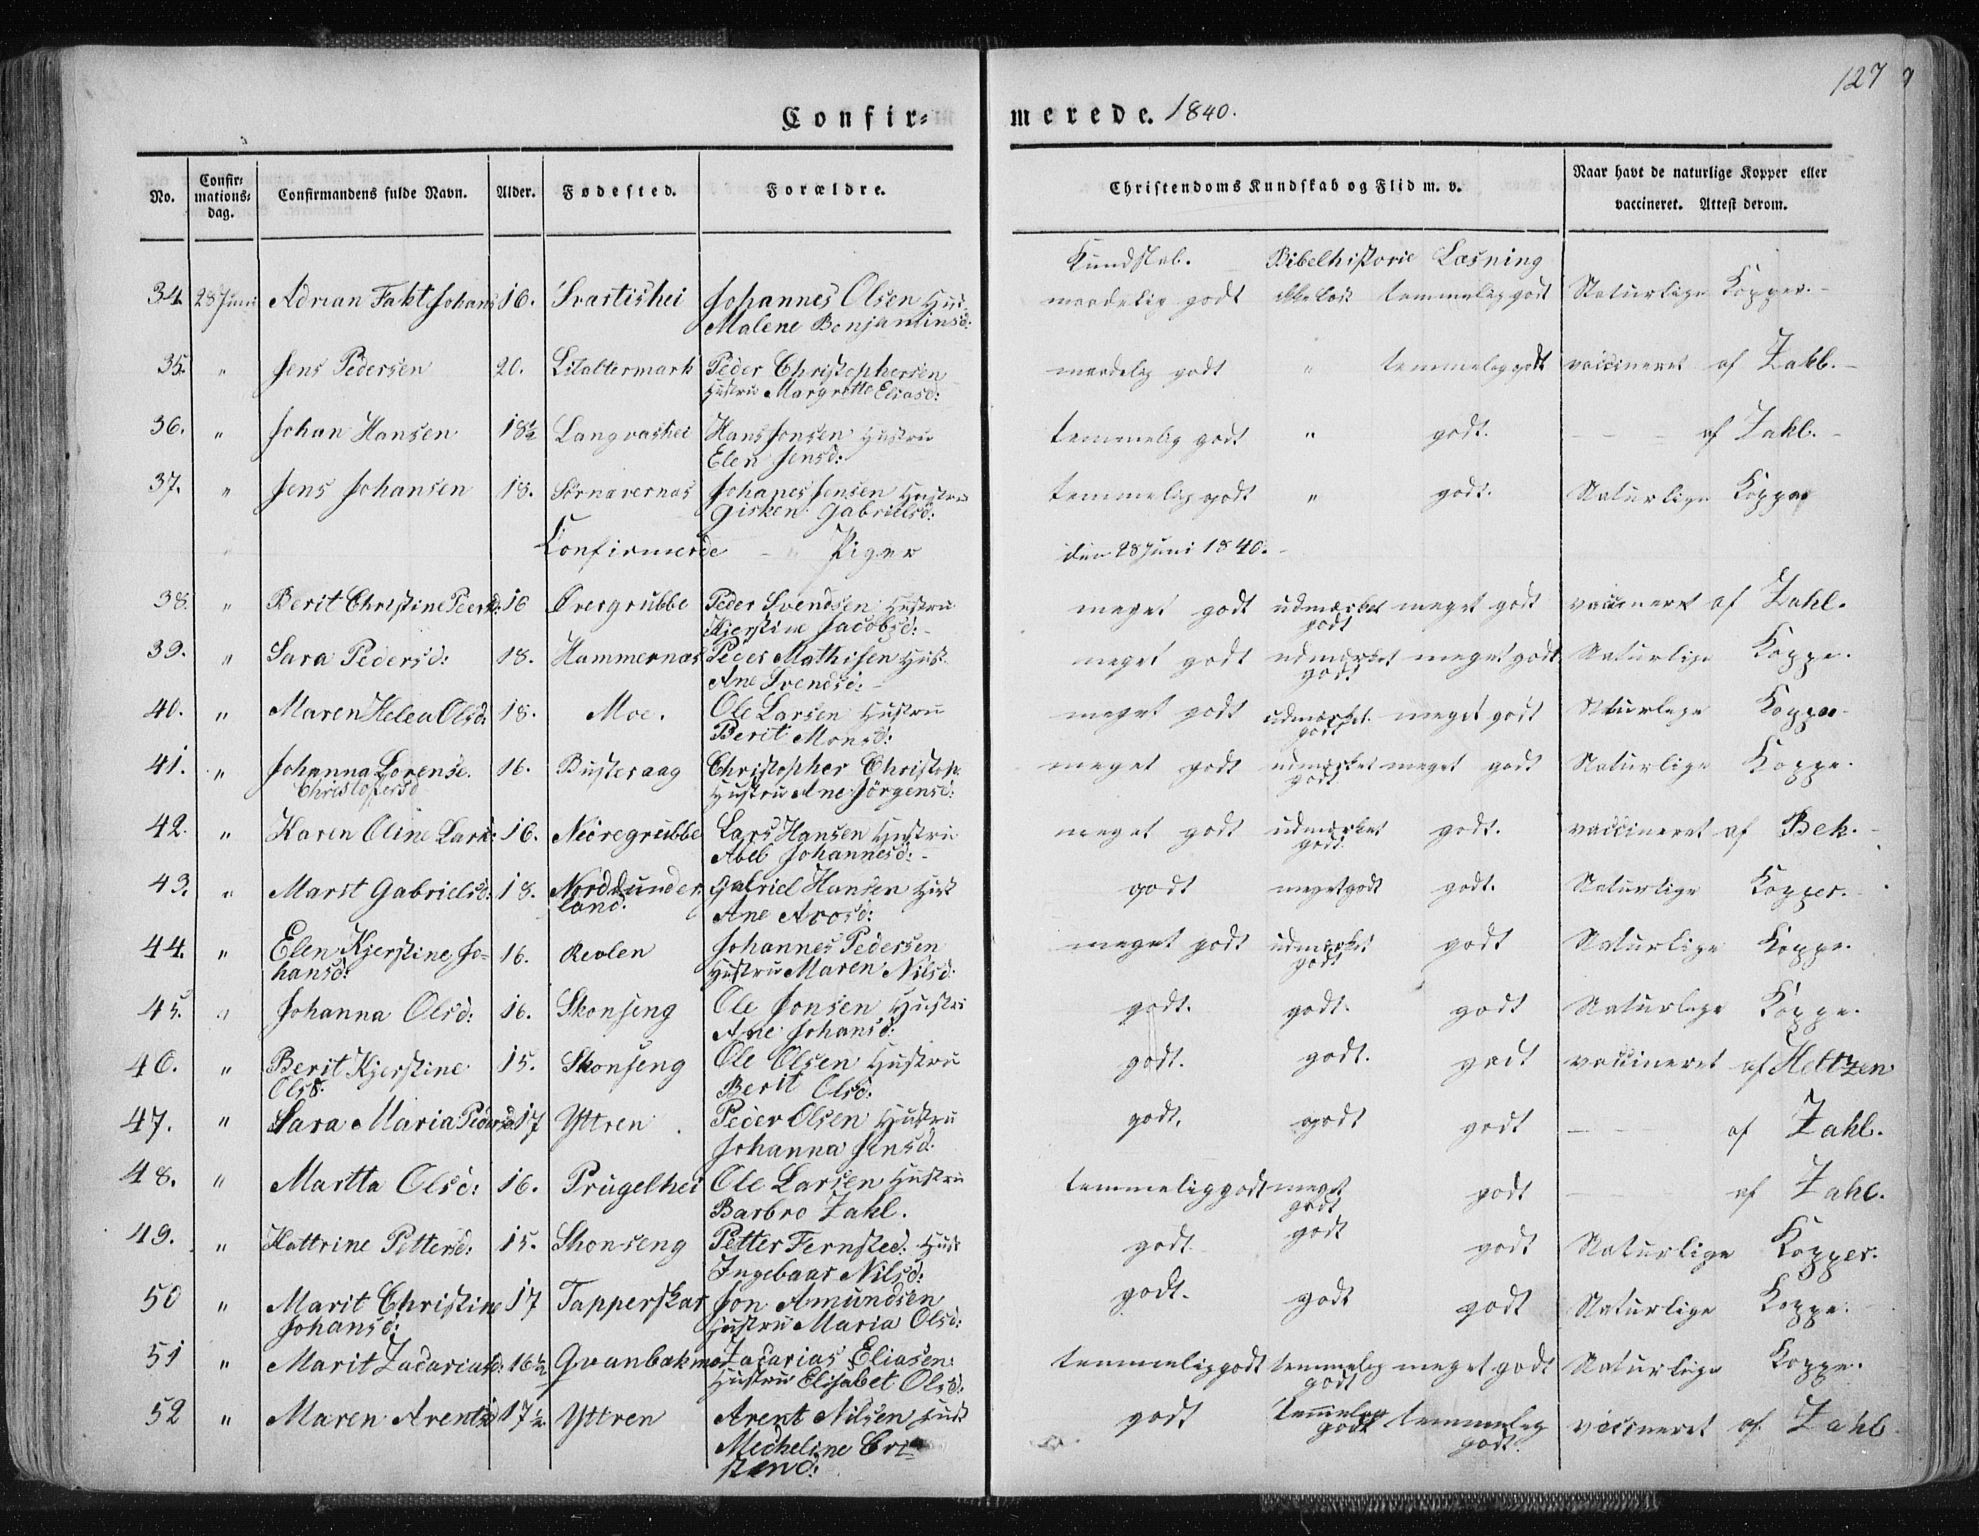 127
Confir=merede. 1840.
No. Confir=mations=dag. Confirmandens fulde Navn. Alder. Fødested. Forældre. Christendoms Kundskab og Flid m. v. Naar havt de naturlige Kopper eller vaccineret. Attest derom.
Kundskab. Bibelhistorie Læsning
34. 28 Juni Adrian Johans 16. Svartishei Johannes Olsen Hus: maadelig godt ikke læst temmelig godt Naturlige Kopper.
Malene Benjaminsd:
35. " Jens Pedersen 20. Peder Christophersen maadelig godt " temmelig godt vaccineret af Zahl.
Hustru Margrette Eliasd:
36. " Johan Hansen 18½ Langvashei Hans Jonsen Hustru temmelig godt " godt. – – – af Zahl.
Elen Jensd:
37. " Jens Johansen 18. Johanes Jensen Hustru temmelig godt " godt. Naturlige Kopper
Gisken Gabrielsd:
" Confirmerde – " Piger den 28 Juni 1840.
38. " Berit Christine Peersd: 16 Øvergrubbe Peder Svendsen Hustru meget godt udmærket godt meget godt vaccineret af Zahl.
Kjerstine Jacobsd:
39. " Sara Pedersd: 18. Hammernæs Peder Mathisen Hust meget godt udmærket godt meget godt Naturlige Koppe.
Ane Svendsd:
40. " Maren Helea Olsd. 18. Moe. Ole Larsen Hustru meget godt udmærket godt meget godt Naturlige Kopper
Berit Monsd:
41. " Johanna Lorense. 16. Busteraag Christopher Christop. meget godt udmærket godt meget godt Naturlige Koppe.
Christofersd Hustru Ane Jörgensd:
42. " Karen Oline Larsd: 16. Nedregrubbe Lars Hansen Hustru meget godt udmærket godt godt. vaccineret af Bek.
Abel Johannesd:
43. " Marit Gabrielsd: 18. Norddunderland. Gabriel Hansen Hust godt meget godt godt. Naturlige Kopper.
Ane Arosd:
44. " Elen Kjerstine Jo= 16. Revlen Johannes Pedersen meget godt udmærket godt godt Naturlige Koppe.
hansd: Hustru Maren Nilsd.
45. " Johanna Olsd: 16. Skonseng Ole Jonsen Hustru godt. godt. godt Naturlige Koppe.
Ane Johansd.
46. " Berit Kjerstine 15. Skonseng Ole Olsen Hustru godt. godt. godt vaccineret af Heltzen
Olsd. Berit Olsd:
47. " Sara Maria Pedersd 17 Yttren Peder Olsen Hustru godt. godt godt – – af Zahl.
Johanna Jensd.
48. " Martta Olsd: 16. Prügelhei Ole Larsen Hustru temmelig godt meget godt godt – – af Zahl.
Barbro Zahl.
49. " Kattrine Pettersd: 15. Skonseng Petter Fernsted: Hust godt godt godt Naturlige Kopper.
Ingebaar Nilsd:
50 " Marit Christine 17 Tapperskar Jon Amundsen godt. godt godt Naturlige Koppe.
Johansd: Hustru Maria Olsd:
51 " Marit Zacariasd: 16½ Gvanbakmo Zacarias Eliasen temmelig godt temmelig godt meget godt Naturlige Koppe.
Hustru Elisabet Olsd:
52 " Maren Arentsd 17½ Yttren Arent Nilsen Hust godt temmelig godt temmelig godt. vaccineret af Zahl
Micheline